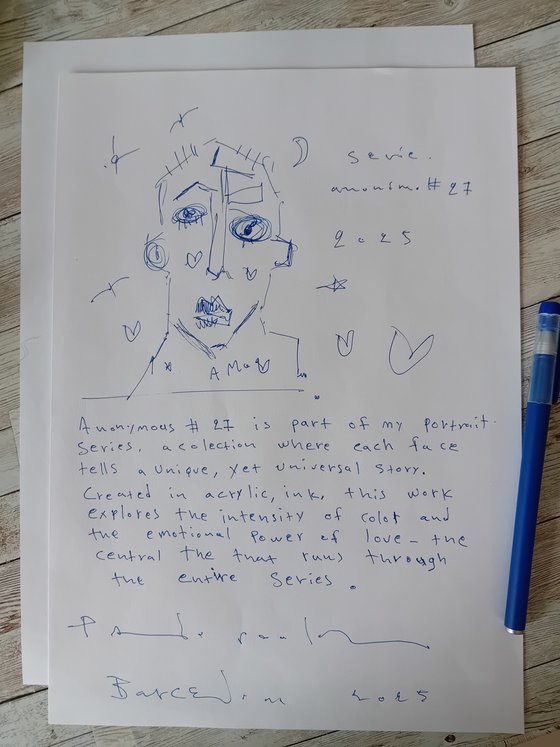 serie.
anonim. # 27
2025
AMOR
Anonymous # 27 is part of my portrait
series, a colection where each face
tells a unique, yet universal story.
Created in acrylic, ink, this work
explores the intensity of color and
the emotional power of love - the
central the that runs through
the entire series.
2025